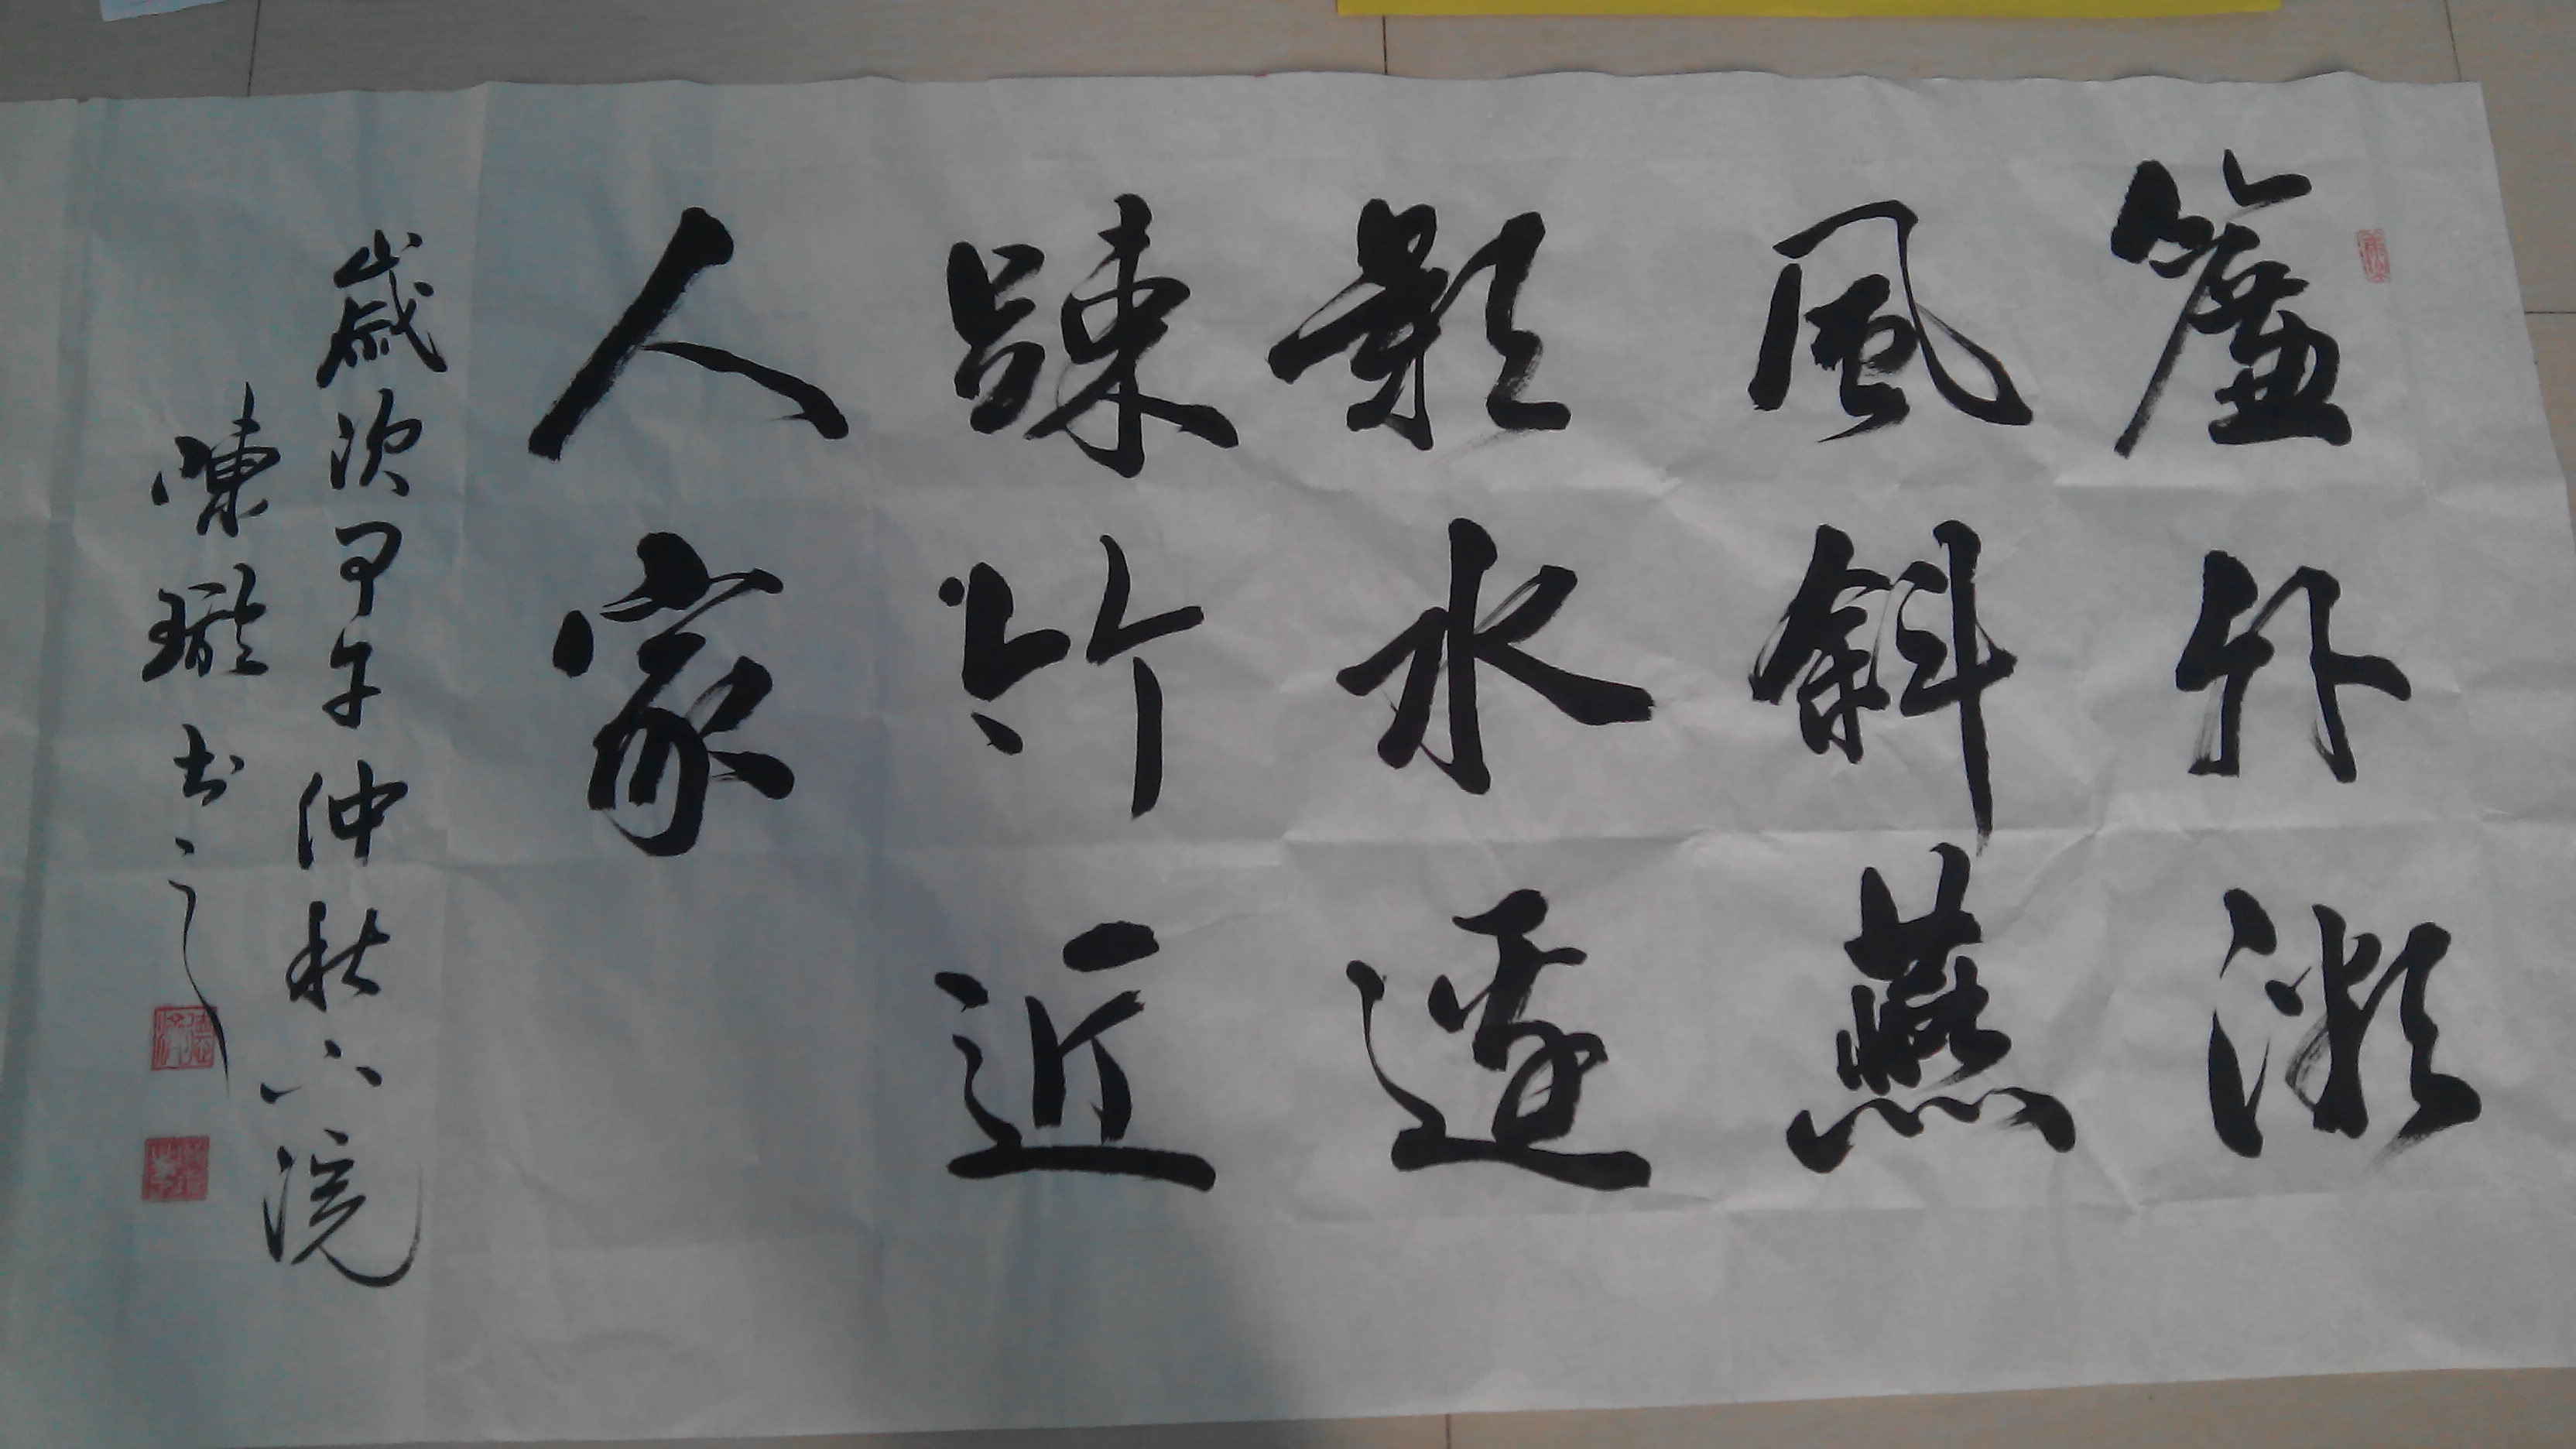 簾外微
風斜燕
影水邊
踈竹近
人家
歲次甲午仲秋下浣
陳瓏書之